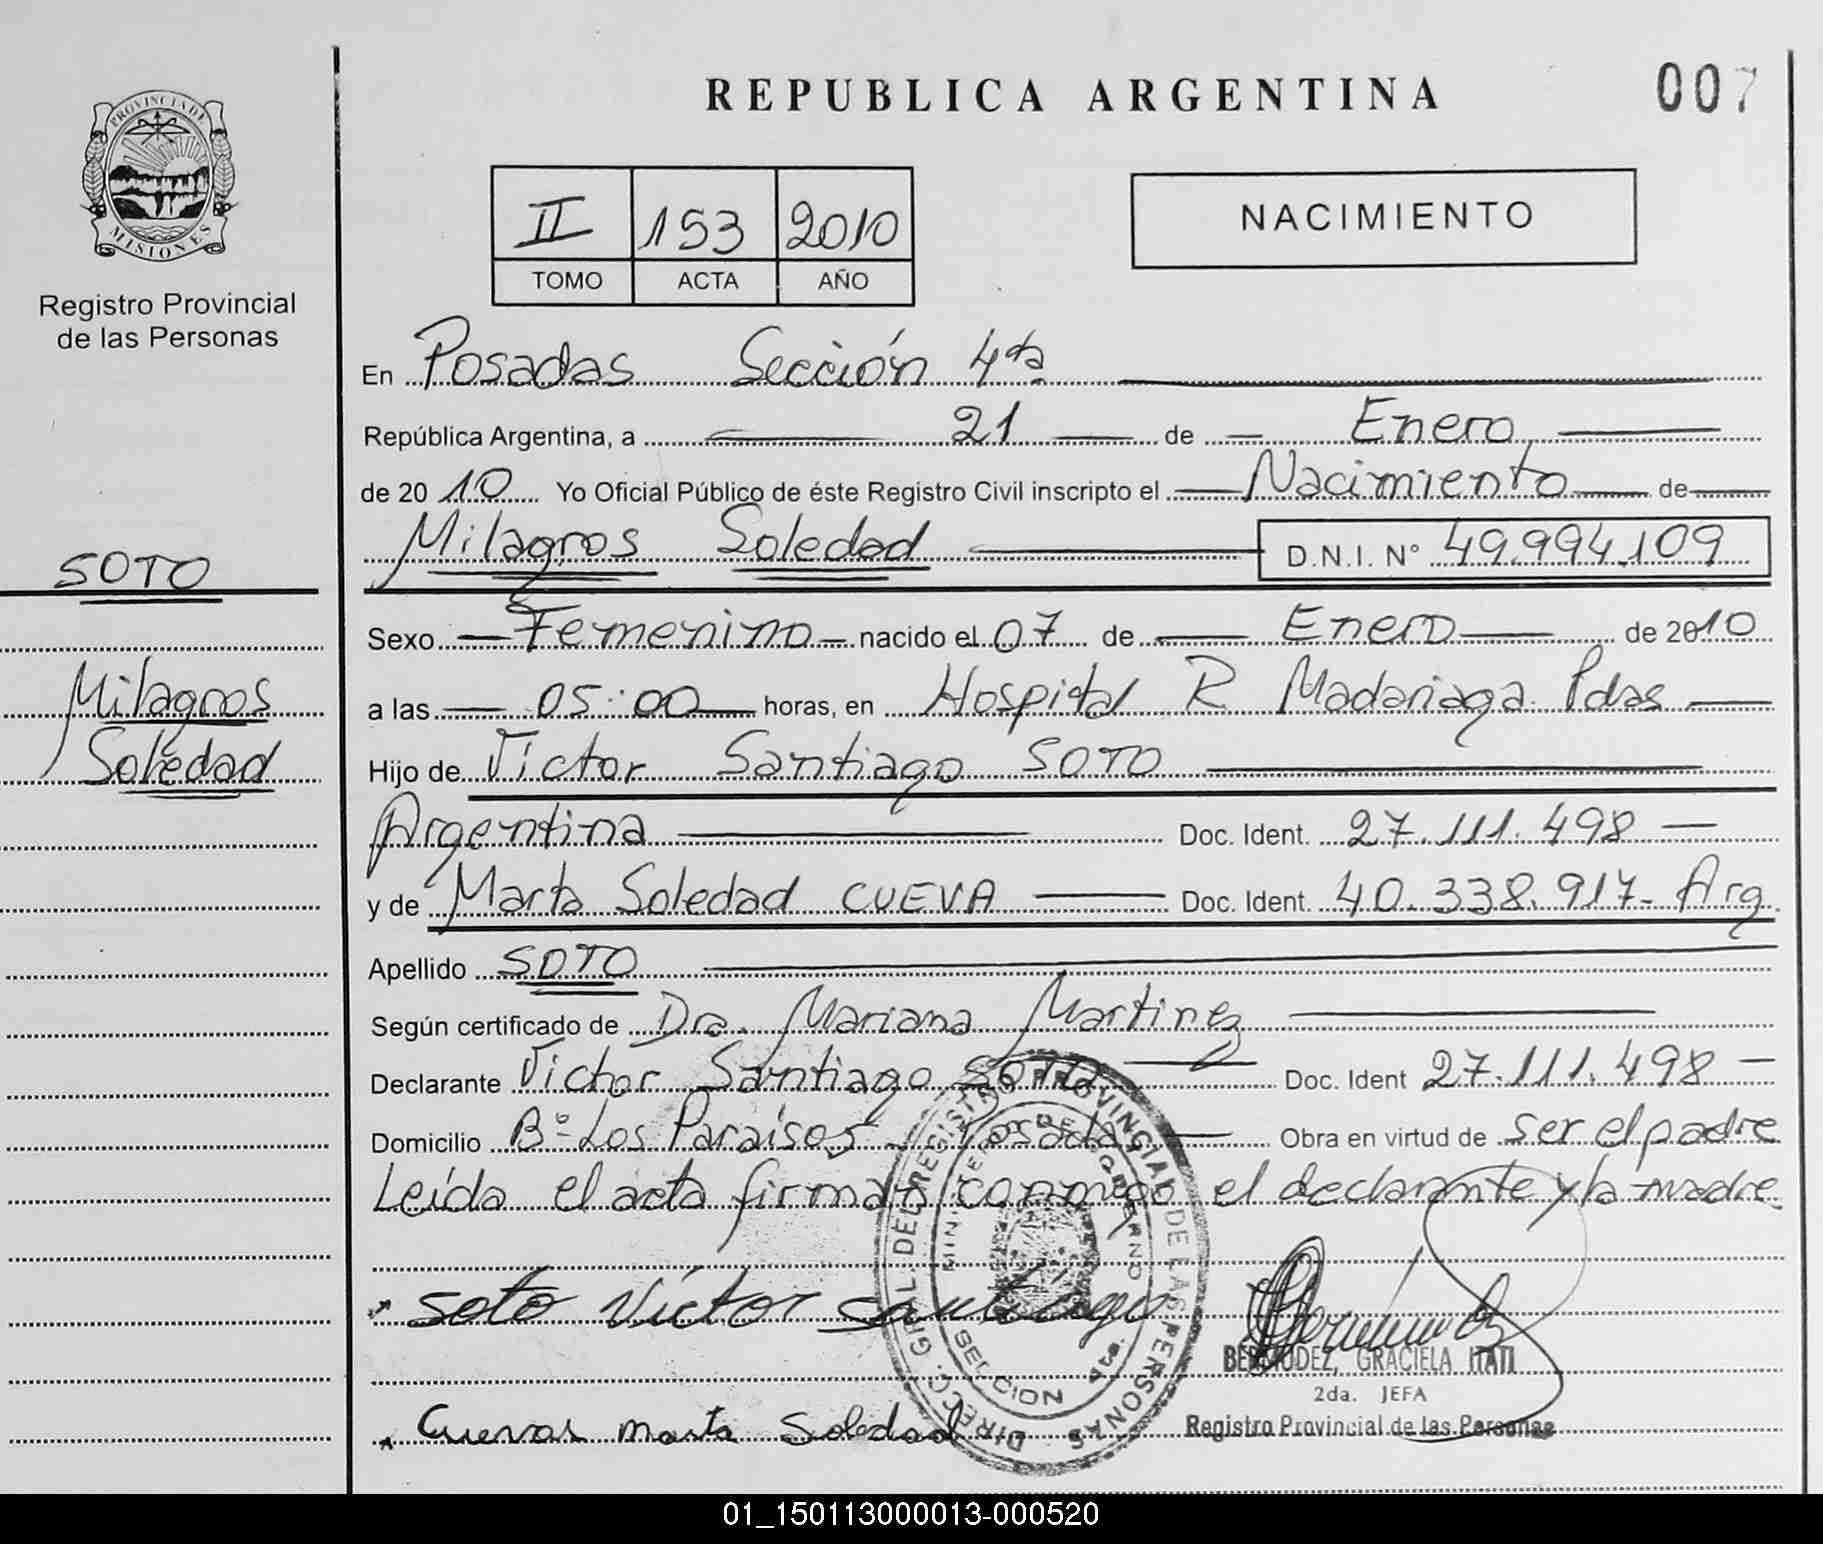 REPUBLICA ARGENTINA
007
PROVINCIA DE
MISIONES
Registro Provincial
de las Personas
II 153 2010
TOMO ACTA AÑO
NACIMIENTO
En Posadas Sección 4ta
República Argentina, a 21 de Enero
de 2010 Yo Oficial Público de éste Registro Civil inscripto el Nacimiento de
Milagros Soledad D.N.I. N° 49.994.109
SOTO
Milagros
Soledad
Sexo Femenino nacido el 07 de Enero de 2010
a las 05:00 horas, en Hospital R Madariaga Pdas
Hijo de Victor Santiago SOTO
Argentina Doc. Ident. 27.111.498
y de Marta Soledad CUEVA Doc. Ident. 40.338.917- Arg
Apellido SOTO
Según certificado de Dra. Mariana Martinez
Declarante Victor Santiago SOTO Doc. Ident 27.111.498
Domicilio Bº Los Paraisos Posadas Obra en virtud de ser el padre
Leida el acta firman conmigo el declarante y la madre
soto Víctor santiago
DIRECC. GRAL. DEL REGISTRO PROVINCIAL DE LAS PERSONAS
MINISTERIO DE GOBIERNO
SECCION 4ta.
BERMUDEZ, GRACIELA ITATI
2da. JEFA
Registro Provincial de las Personas
Cuevas marta Soledad
01_150113000013-000520